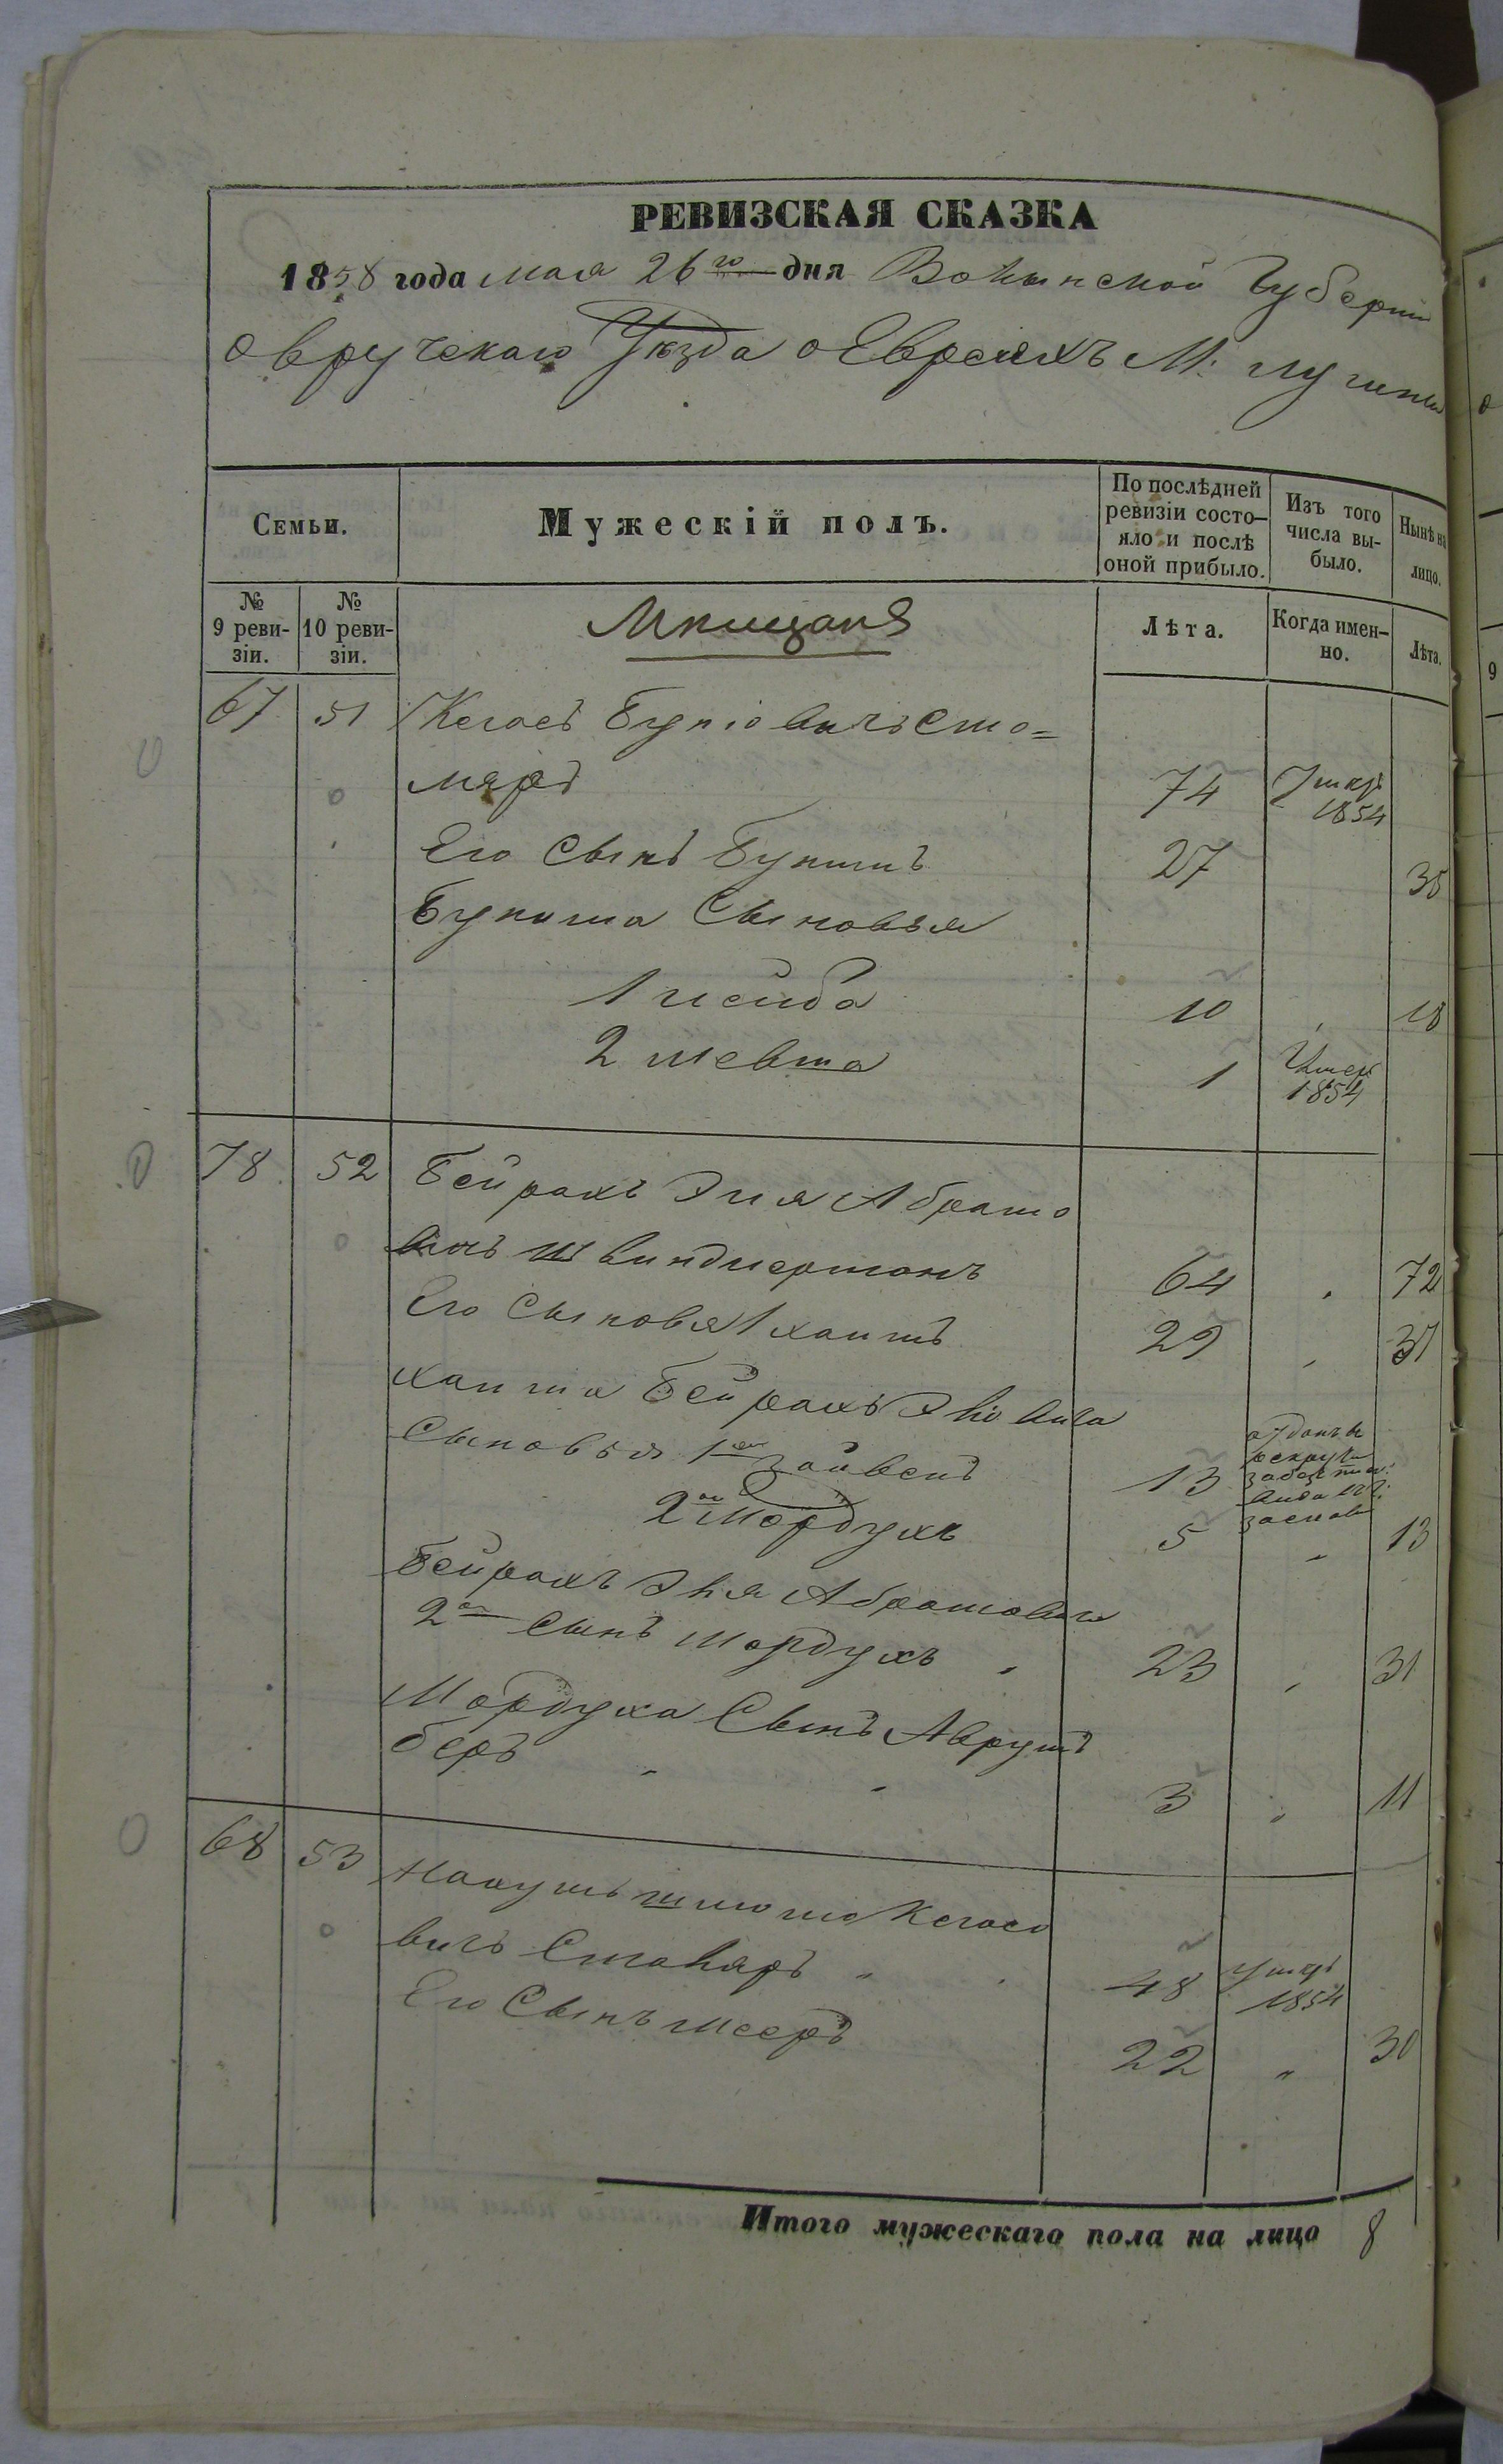 РЕВИЗСКАЯ СКАЗКА
1858 года мая 26го дня Волынской Губерни
Овручскаго Уѣзда о Евреяхъ М.
Семьи.
Мужескій полъ.
По послѣдней ревизіи состо-
яло и послѣ оной прибыло.
Изъ того числа вы-
было.
Нынѣ на лицо.
№ 9 реви-
зіи.
№ 10 реви-
зіи.
Мѣщанѣ
Лѣта.
Когда имен-
но.
Лѣта.
67 51 Сто=
ляръ 74 умеръ 1854
Его Сынъ 27 35
Сыновья
1 Лейба 10 18
2 1 Умеръ 1854
78 52 Бейрахъ Эля Абрамо
вичъ Швиндлерманъ 64 72
Его Сыновья 1 Хаимъ 29 37
Хаима Бейрахъ Эліовича
Сыновья 1й 13 отданъ в рекруты
2й Мордухъ 5 13
Бейрахъ Эля Абрамовича
2й Сынъ Мордухъ 23 31
Мордуха Сынъ Аврумъ
беръ 3 11
68 53 Нахумъ
вичъ Столяръ 48 умеръ 1854
Его Сынъ Мееръ 22 30
Итого мужескаго пола на лицо 8